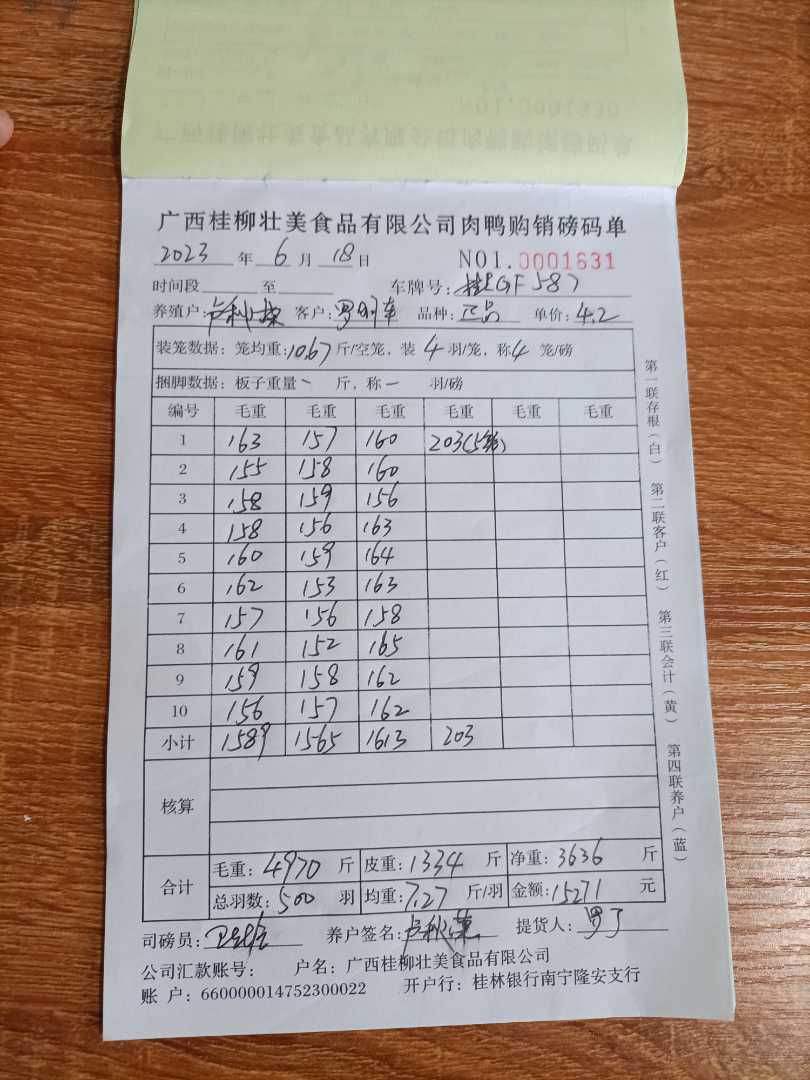 广西桂柳壮美食品有限公司肉鸭购销磅码单
2023 年 6 月 18 日 NO1.0001631
时间段 至 车牌号: 桂LGF587
养殖户: 卢秋棠 客户: 罗 车 品种: 正品 单价: 4.2
装笼数据: 笼均重: 10.67 斤/空笼, 装 4 羽/笼, 称 4 笼/磅
捆脚数据: 板子重量 一 斤, 称 一 羽/磅
编号 毛重 毛重 毛重 毛重 毛重 毛重
1 163 157 160 203(5笼)
2 155 158 160
3 158 159 156
4 158 156 163
5 160 159 164
6 162 153 163
7 157 156 158
8 161 152 165
9 159 158 162
10 156 157 162
小计 1589 1565 1613 203
核算
合计 毛重: 4970 斤 皮重: 1334 斤 净重: 3636 斤
总羽数: 500 羽 均重: 7.27 斤/羽 金额: 15271 元
司磅员: 养户签名: 卢秋棠 提货人: 罗丁
公司汇款账号: 户名: 广西桂柳壮美食品有限公司
账 户: 660000014752300022 开户行: 桂林银行南宁隆安支行
第一联存根(白) 第二联客户(红) 第三联会计(黄) 第四联养户(蓝)